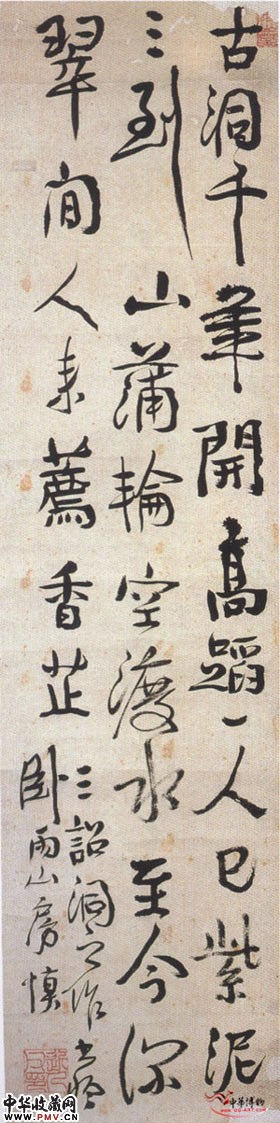 古洞千年開高蹈一人已紫泥
三到山蒲輪空渡水至今深
翠間人来薦香芷
三詔洞之作書
卧雨山房慎
中华收藏网
WWW.PMV.CN
中华博物
WWW.GG-ART.COM